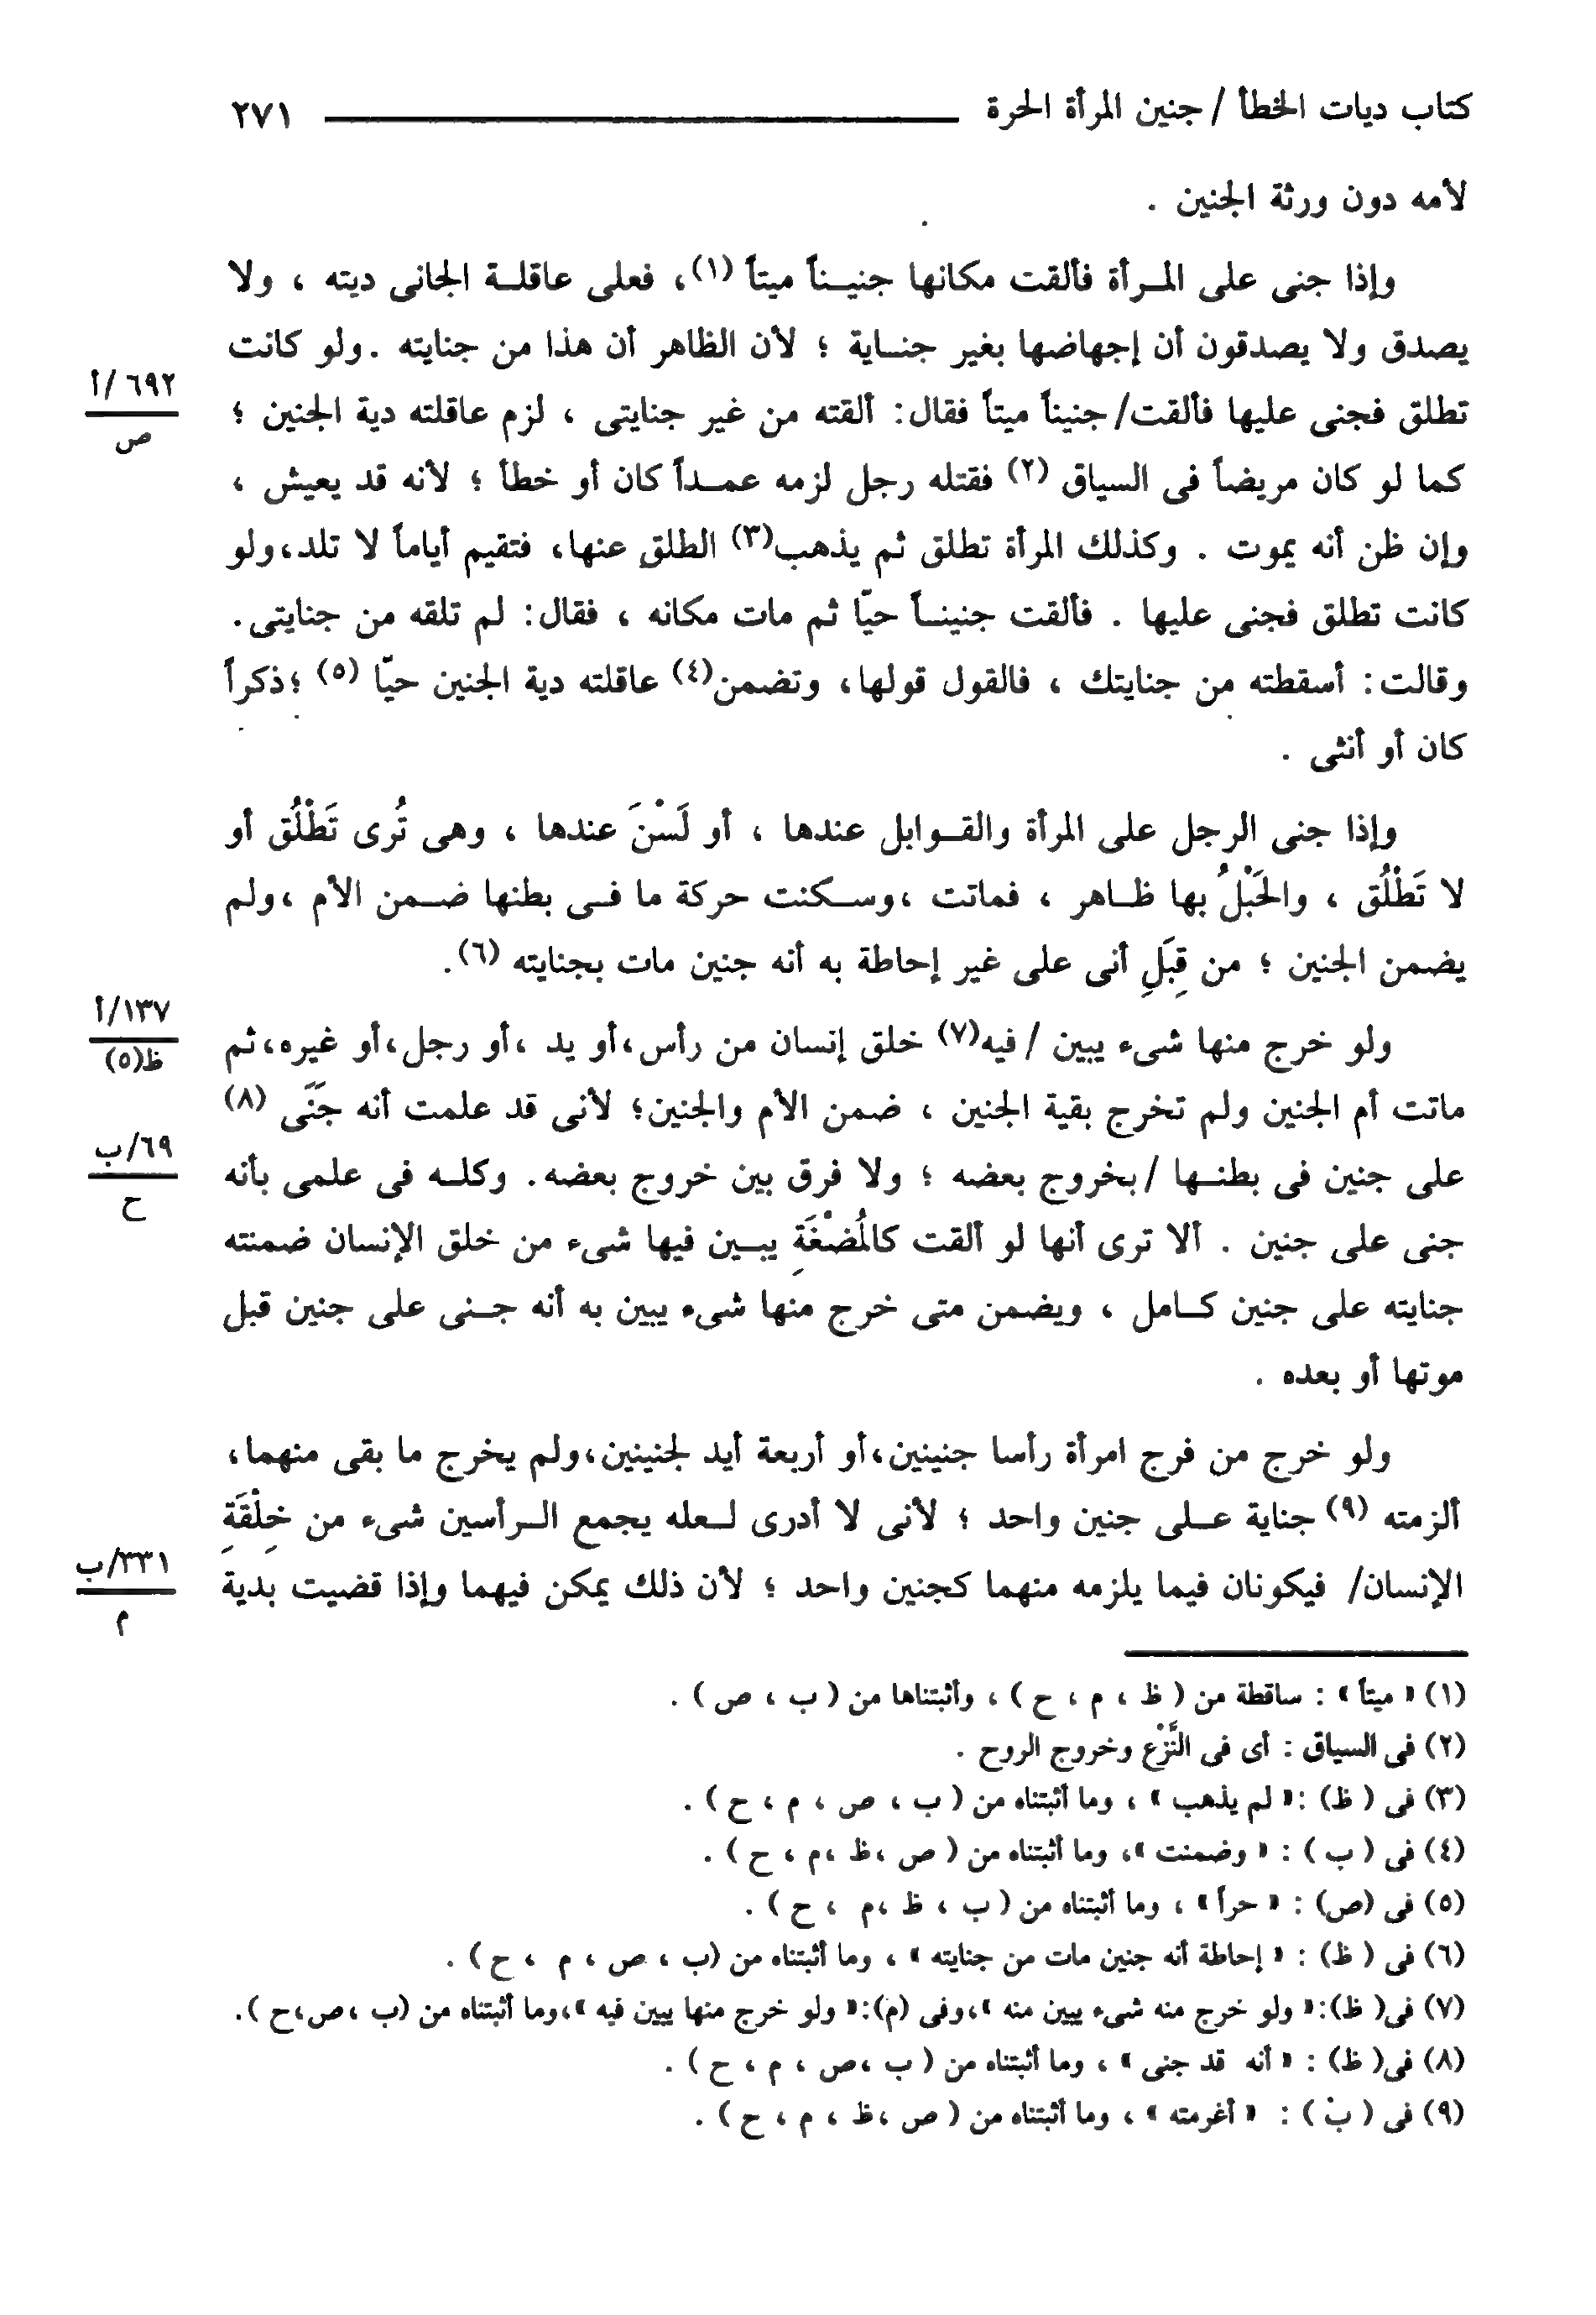 كتاب ديات الخطأ / جنين المرأة الحرة ٢٧١
لأمه دون ورثة الجنين .
وإذا جنى على المرأة فألقت مكانها جنيناً ميتاً (١)، فعلى عاقلة الجانى ديته ، ولا
يصدق ولا يصدقون أن إجهاضها بغير جناية ؛ لأن الظاهر أن هذا من جنايته .ولو كانت
٦٩٢/أ
ص
تطلق فجنى عليها فألقت/جنيناً ميتاً فقال: ألقته من غير جنايتى ، لزم عاقلته دية الجنين ؛
كما لو كان مريضاً فى السياق (٢) فقتله رجل لزمه عمداً كان أو خطأ ؛ لأنه قد يعيش ،
وإن ظن أنه يموت . وكذلك المرأة تطلق ثم يذهب(٣) الطلق عنها، فتقيم أياماً لا تلد،ولو
كانت تطلق فجنى عليها . فألقت جنيناً حيّا ثم مات مكانه ، فقال: لم تلقه من جنايتى.
وقالت: أسقطته من جنايتك ، فالقول قولها، وتضمن(٤) عاقلته دية الجنين حيّا (٥) ؛ذكراً
كان أو أنثى .
وإذا جنى الرجل على المرأة والقوابل عندها ، أو لَسْنَ عندها ، وهى تُرى تَطْلُق أو
لا تَطْلُق ، والحَبْلُ بها ظاهر ، فماتت ،وسكنت حركة ما فى بطنها ضمن الأم ،ولم
يضمن الجنين ؛ من قِبَلِ أنى على غير إحاطة به أنه جنين مات بجنايته (٦).
١٣٧/أ
ظ(٥)
ولو خرج منها شىء يبين /فيه(٧) خلق إنسان من رأس،أو يد ،أو رجل،أو غيره،ثم
ماتت أم الجنين ولم تخرج بقية الجنين ، ضمن الأم والجنين؛ لأنى قد علمت أنه جَنَى (٨)
٦٩/ب
ح
على جنين فى بطنها /بخروج بعضه ؛ ولا فرق بين خروج بعضه. وكله فى علمى بأنه
جنى على جنين . ألا ترى أنها لو ألقت كالمُضْغَةِ يبين فيها شىء من خلق الإنسان ضمنته
جنايته على جنين كامل ، ويضمن متى خرج منها شىء يبين به أنه جنى على جنين قبل
موتها أو بعده .
ولو خرج من فرج امرأة رأسا جنينين،أو أربعة أيد لجنينين،ولم يخرج ما بقى منهما،
ألزمته (٩) جناية على جنين واحد ؛ لأنى لا أدرى لعله يجمع الرأسين شىء من خِلْقَةِ
٣٣١/ب
م
الإنسان/ فيكونان فيما يلزمه منهما كجنين واحد ؛ لأن ذلك يمكن فيهما وإذا قضيت بدية
(١) « ميتاً » : ساقطة من ( ظ ، م ، ح ) ، وأثبتناها من ( ب ، ص ) .
(٢) فى السياق : أى فى النَّزْع وخروج الروح .
(٣) فى ( ظ) :« لم يذهب » ، وما أثبتناه من ( ب ، ص ، م ، ح ) .
(٤) فى ( ب ) : « وضمنت »، وما أثبتناه من ( ص ،ظ ،م ، ح ) .
(٥) فى (ص) : « حراً » ، وما أثبتناه من ( ب ، ظ ،م ، ح ) .
(٦) فى ( ظ) : « إحاطة أنه جنين مات من جنايته » ، وما أثبتناه من (ب ، ص ، م ، ح ) .
(٧) فى( ظ):« ولو خرج منه شىء يبين منه »،وفى (م):« ولو خرج منها يبين فيه »،وما أثبتناه من (ب ،ص،ح ).
(٨) فى( ظ) : « أنه قد جنى » ، وما أثبتناه من ( ب ،ص ، م ، ح ) .
(٩) فى ( ب ) : « أغرمته » ، وما أثبتناه من ( ص ،ظ ، م ، ح ) .